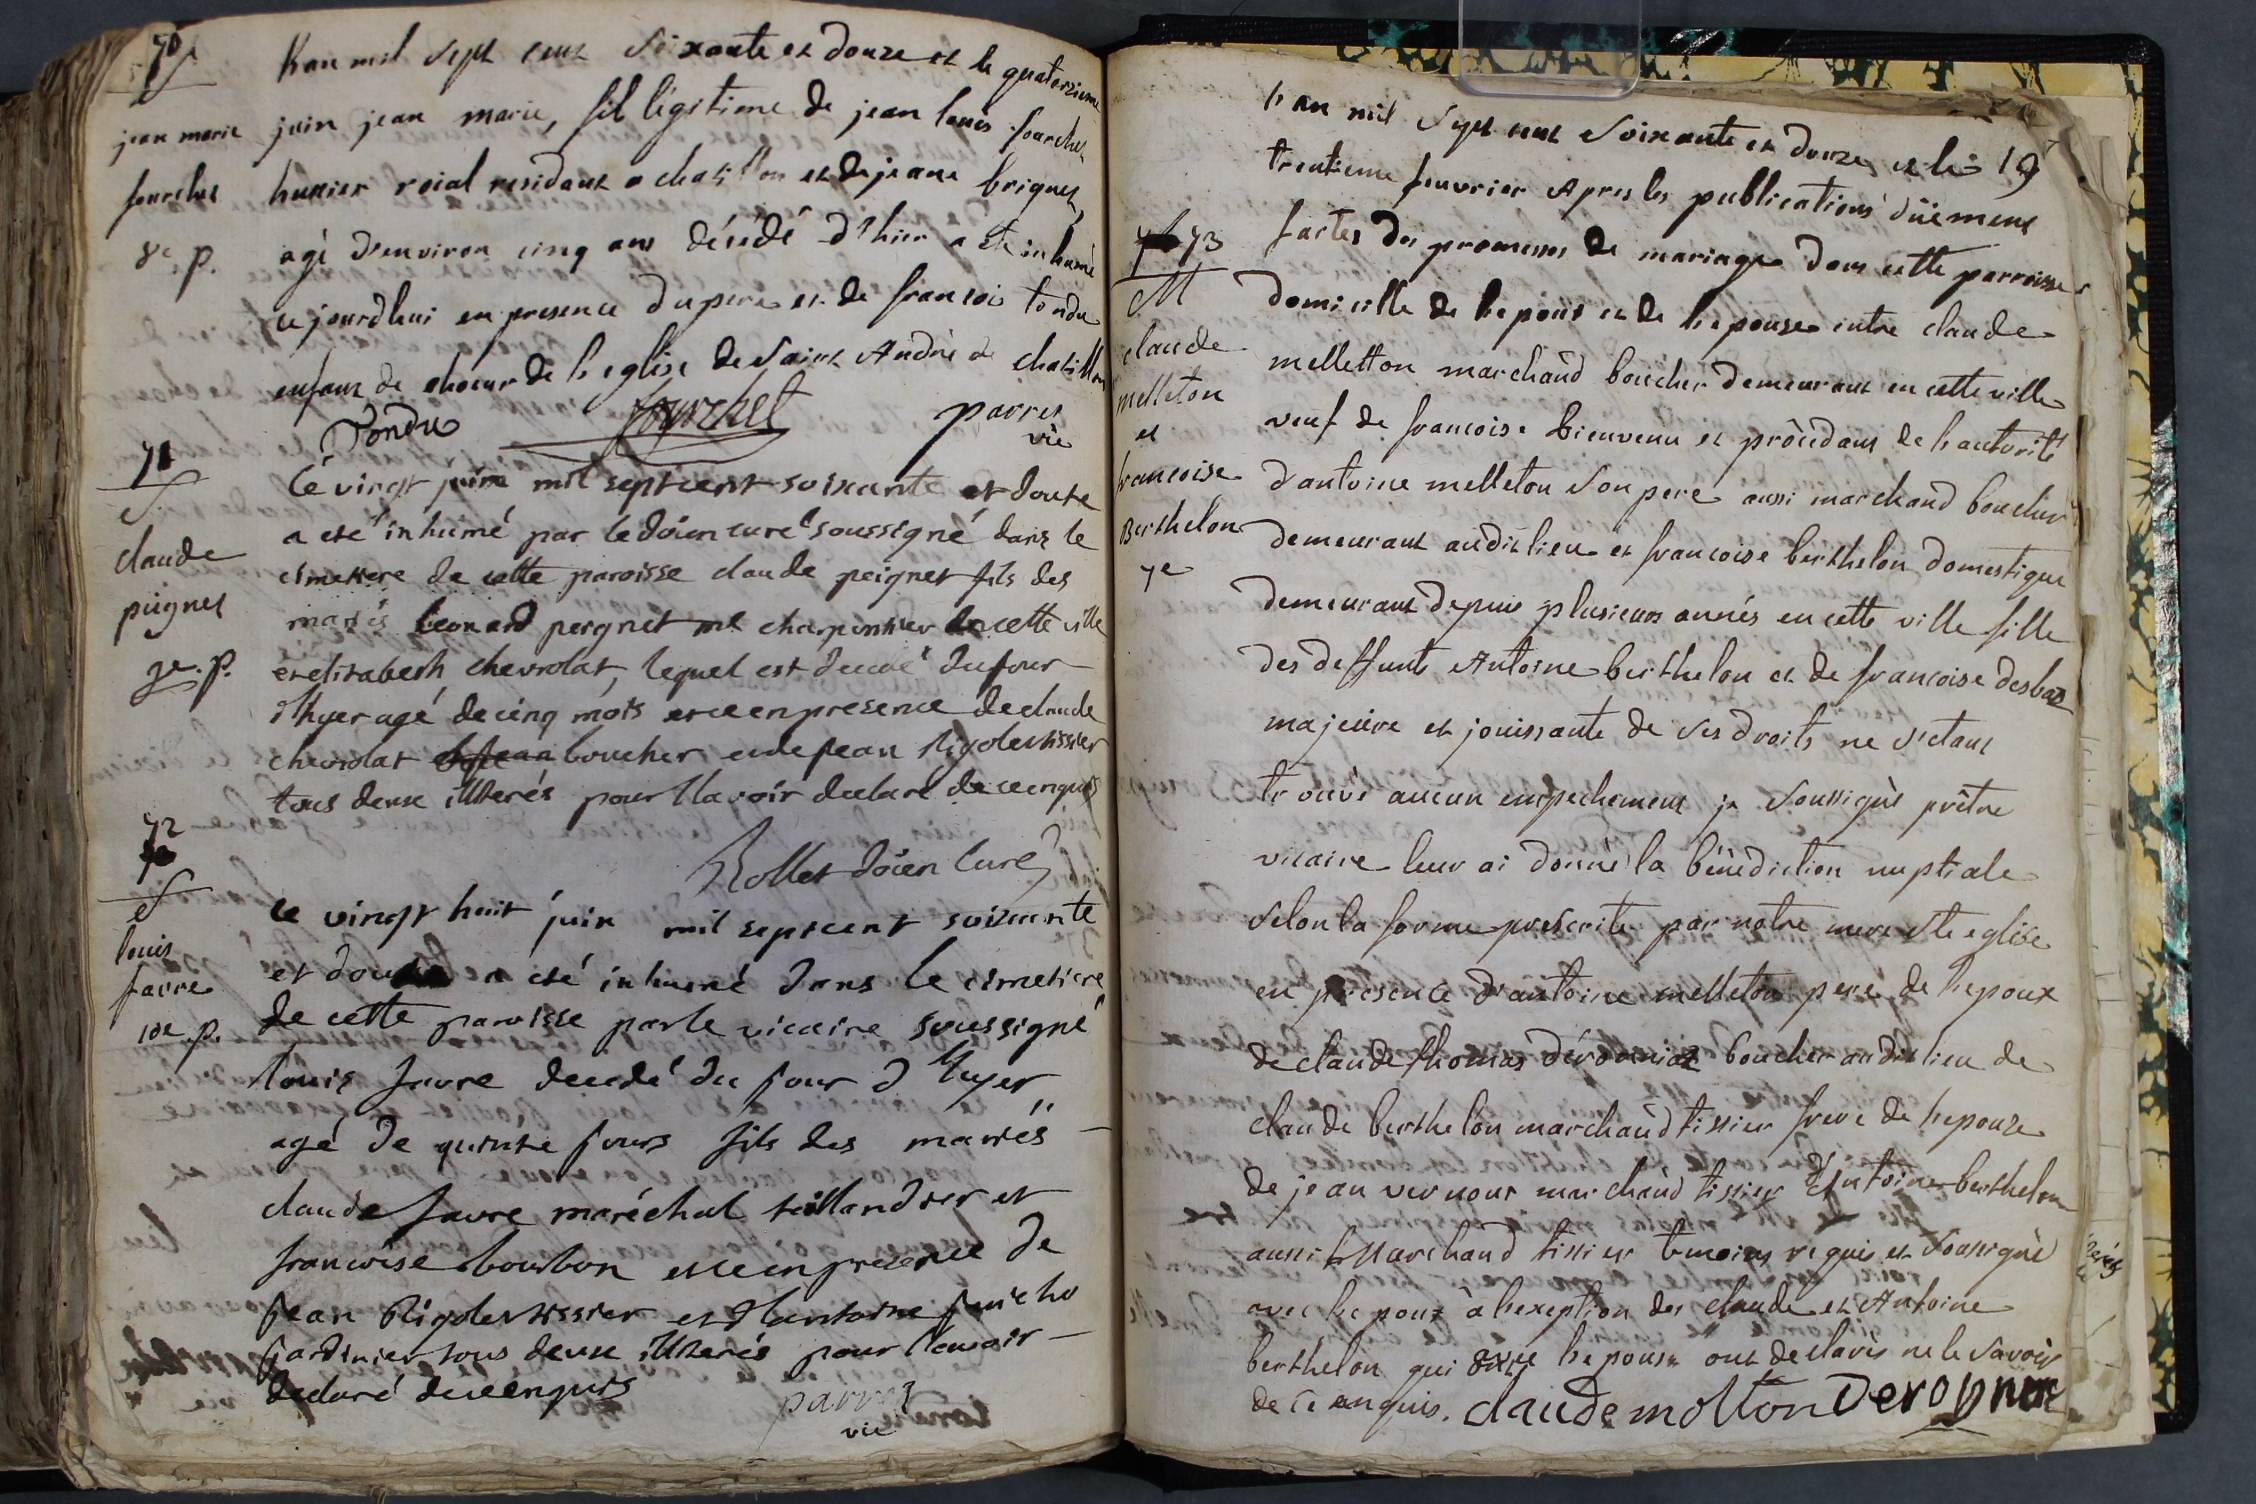 70
S
jean marie
fourchet
8e. p.
L'an mil sept cent soixante et douze et le quatorzieme
juin jean marie, fil légitime de jean louis fourchet
huisier roial residant a chatillon et de jeane briquet,
agé d'environ cinq ans décédé d'hier a été inhumé
cejourd'hui en presence du pere et de francoi tondu
enfant de choeur de l'eglise de saint André de chatillon
Tondu fourchet parret
vic
71
S.
claude
peignet
9e. p.
Ce vingt juin mil septcent soixante et douze
a eté inhumé par le doien curé soussigné dans le
cimetiere de cette paroisse claude peignet fils des
mariés leonard peignet me charpentier de cette ville
et elizabeth chevrolat, lequel est decedé du jour
d'hyer agé de cinq mois et ce en presence de claude
chevrolat boucher et de jean Rigolet tissier
tous deux illiterés pour l'avoir declaré de ce enquis
Rollet doien curé
72
S
louis
favre
10e. p.
Le vingt huit juin mil septcent soixante
et douze a eté inhumé dans le cimetiere
de cette paroisse par le vicaire soussigné
louis favre decedé du jour d'hyer
agé de quinze jours fils des mariés
claude favre maréchal taillandier et
francoise bourbon et ce en presence de
jean Rigolet tissier et d'antoine
jardinier tous deux illiterés pour l'avoir
declaré de ce enquis
parret
vic
L'an mil sept cent soixante et douze, et le 19
trentieme feuvrier apres les publications düement
73
M
claude
melleton
et
francoise
Berthelon
7e
faites des promesses de mariage dans cette parroisse
domicille de l'epoux et de l'epouse entre claude
melletton marchand boucher demeurant en cette ville
veuf de francoise bienvenu et procédant de l'autorité
d'antoine melleton son pere aussi marchand boucher
demeurant audit lieu et francoise berthelon domestique
demeurant depuis plusieurs annés en cette ville fille
des deffunts Antoine berthelon et de francoise desbaz
majeure et jouissante de ses droits ne s'etant
trouvé aucun empechement je soussigné prêtre
vicaire leur ai donné la bénédiction nuptiale
selon la forme prescrite par notre mere ste eglise
en presence d'antoine melleton pere de l'epoux
de claude thomas dérogniaz boucher audit lieu de
claude berthelon marchand tissier frere de l'epouze
de jean vernoux marchand tissier d'Antoine berthelon
aussi Marchand tissier temoins requis et soussigné
avec l'epoux à l'exception des claude et Antoine
berthelon qui avec l'epouse ont declarés ne le savoir
de ce enquis. claude molton